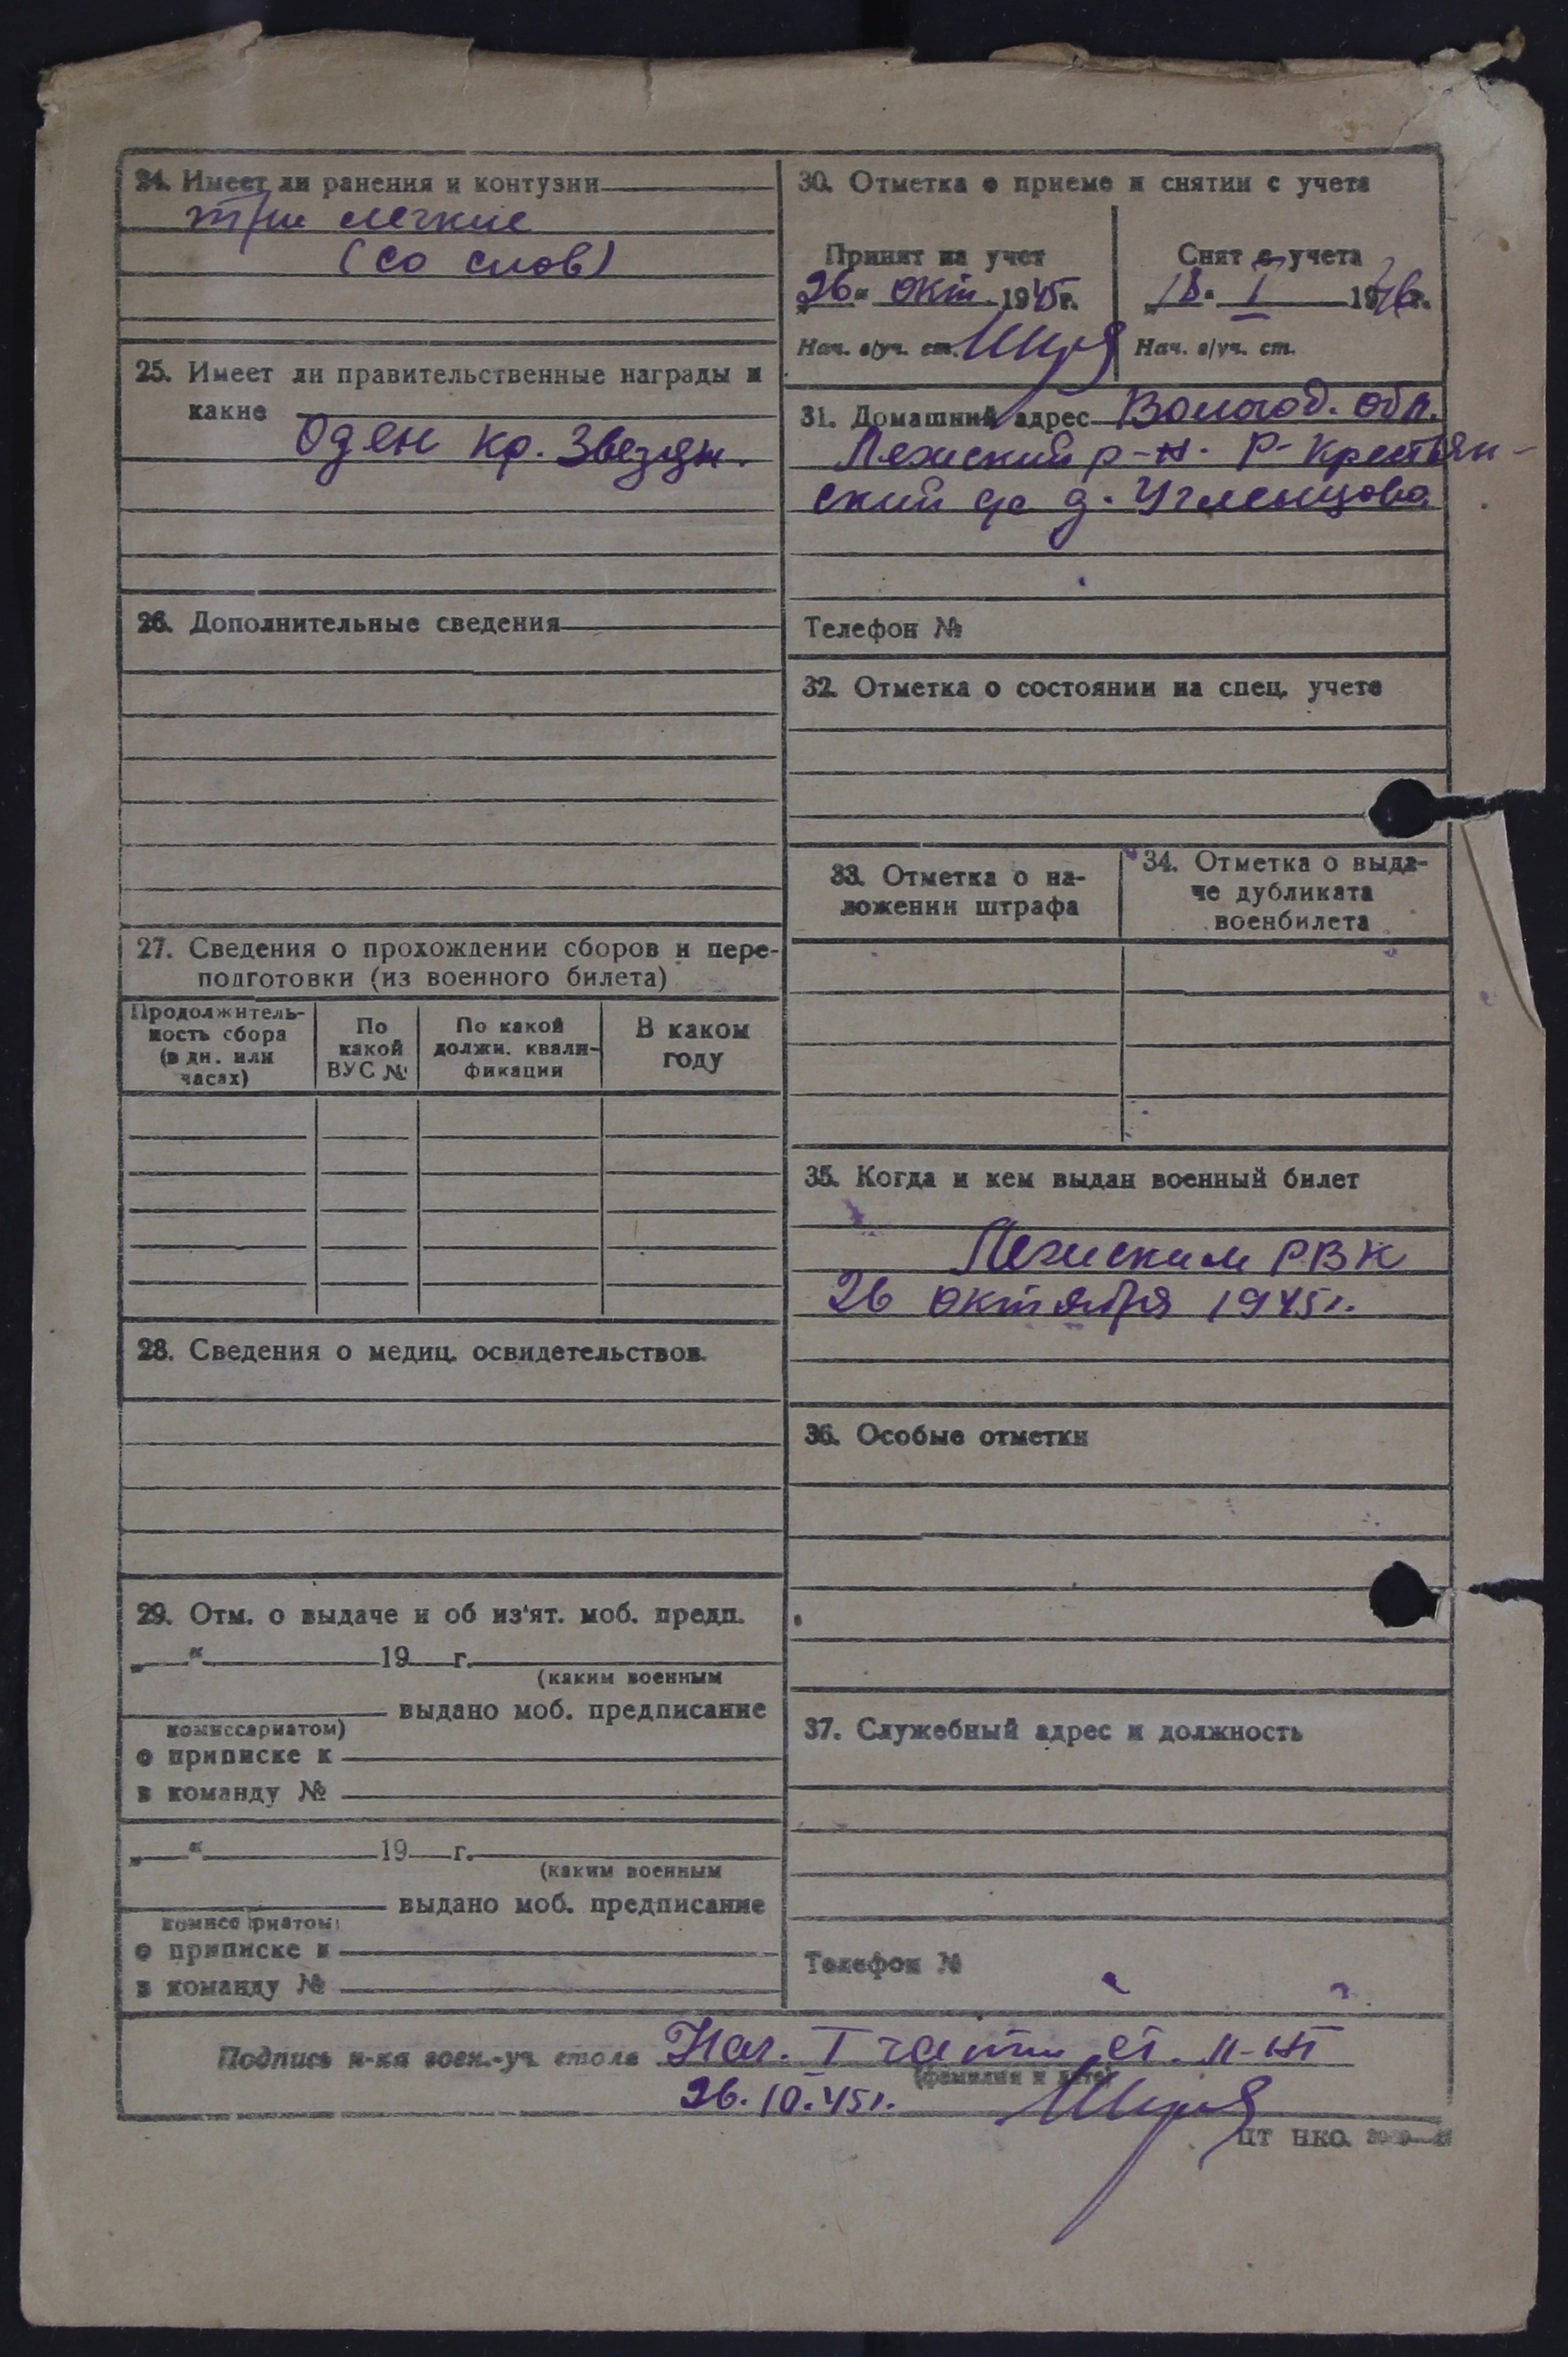 24. Имеет ли ранения и контузии
три легкие
(со слов)
25. Имеет ли правительственные награды и
какие
Оден Кр. Звезды.
26. Дополнительные сведения
27. Сведения о прохождении сборов и пере-
подготовки (из военного билета)
Продолжитель-
ность сбора
(в дн. или
часах)
По
какой
ВУС №
По какой
должн. квали-
фикации
В каком
году
28. Сведения о медиц. освидетельствов.
29. Отм. о выдаче и об из'ят. моб. предп.
„ “ 19 г.
(каким военным
выдано моб. предписание
комиссариатом)
о приписке к
в команду №
„ “ 19 г.
(каким военным
выдано моб. предписание
комиссариатом)
о приписке к
в команду №
30. Отметка о приеме и снятии с учета
Принят на учет
26 окт. 1945г.
Нач. в/уч. ст.
Снят с учета
18. I 1946г.
Нач. в/уч. ст.
31. Домашний адрес Вологод. обл.
Лежский р-н. Р-Крестьян-
ский с/с д. Угленцово
Телефон №
32. Отметка о состоянии на спец. учете
33. Отметка о на-
ложении штрафа
34. Отметка о выда-
че дубликата
военбилета
35. Когда и кем выдан военный билет
Лежским РВК
26 октября 1945г.
36. Особые отметки
37. Служебный адрес и должность
Телефон №
Подпись н-ка воен.-уч. стола Нач. I части ст. л-нт
(фамилия и дата)
26.10.45г.
ЦТ НКО.